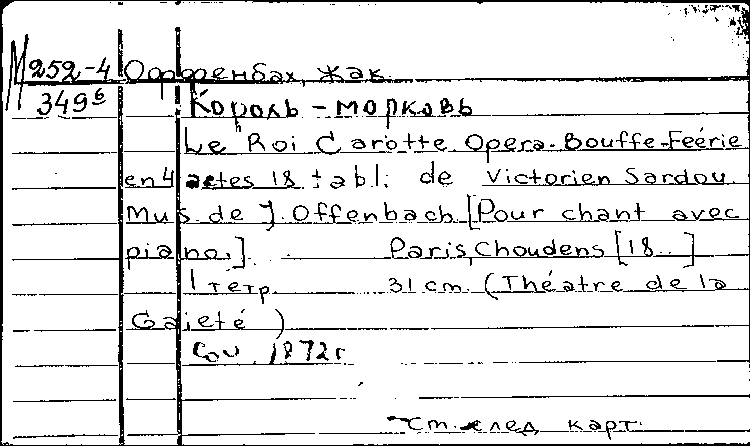 М 252-4 Оффенбах, Жак.
349б Король-морковь
Le Roi Carotte Opera-Bouffe-Feérie
en 4 actes 18 tabl. de Victorien Sardou
Mus. de J. Offenbach [Pour chant avec
piano.] Paris, Choudens [18..]
1 тетр. 31 cm. (Théatre de la
Gaieté)
Соч. 1872г
См. след. карт.